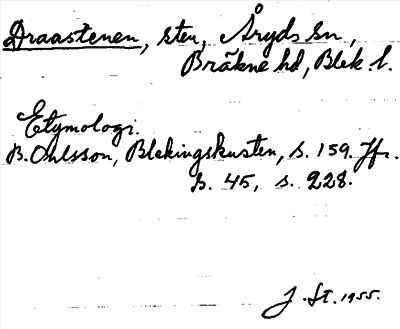 Draastenen, sten, Åryds sn,
Bräkne hd, Blek. l.
Etymologi.
B. Ohlsson, Blekingskusten, s. 159. Jfr.
s. 45, s. 228.
J. St. 1955.